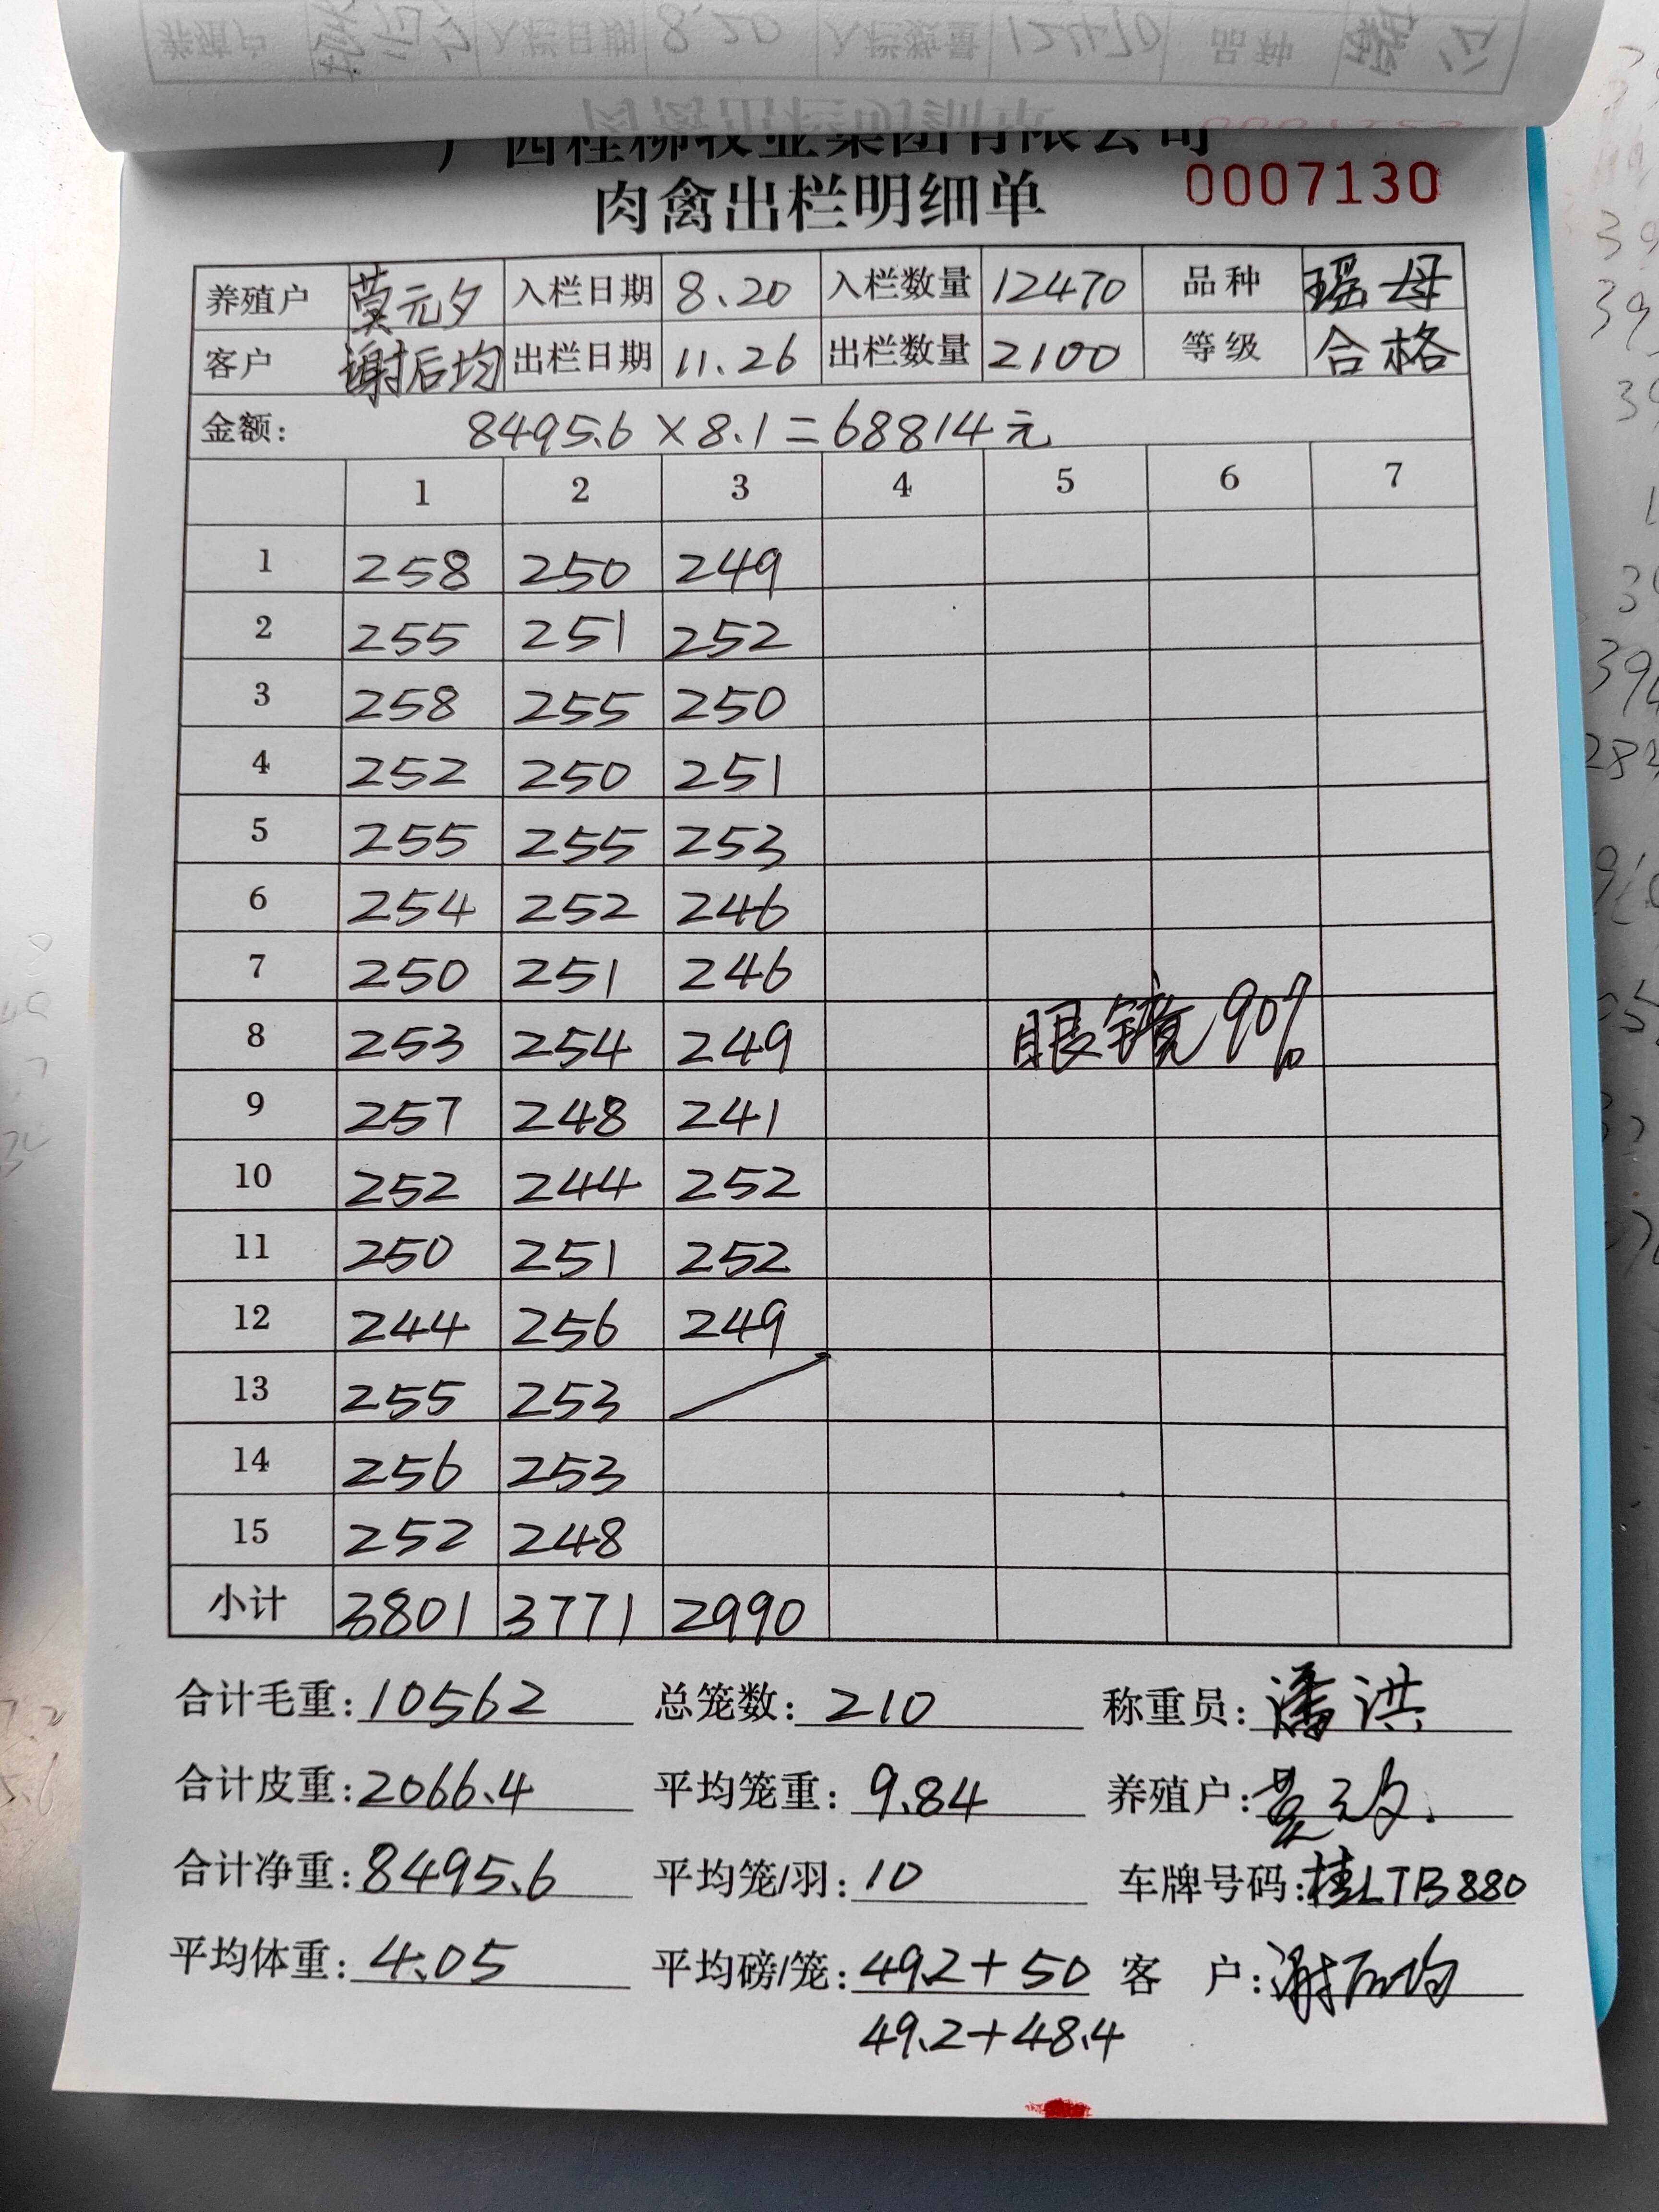 广西桂柳牧业集团有限公司
肉禽出栏明细单 0007130
养殖户 莫元夕 入栏日期 8.20 入栏数量 12470 品种 瑶母
客户 谢后均 出栏日期 11.26 出栏数量 2100 等级 合格
金额: 8495.6×8.1=68814元
1 2 3 4 5 6 7
1 258 250 249
2 255 251 252
3 258 255 250
4 252 250 251
5 255 255 253
6 254 252 246
7 250 251 246
8 253 254 249 眼镜90%
9 257 248 241
10 252 244 252
11 250 251 252
12 244 256 249
13 255 253
14 256 253
15 252 248
小计 3801 3771 2990
合计毛重: 10562 总笼数: 210 称重员: 潘洪
合计皮重: 2066.4 平均笼重: 9.84 养殖户: 莫元夕
合计净重: 8495.6 平均笼/羽: 10 车牌号码: 桂LTB880
平均体重: 4.05 平均磅/笼: 49.2+50 客 户: 谢后均
49.2+48.4